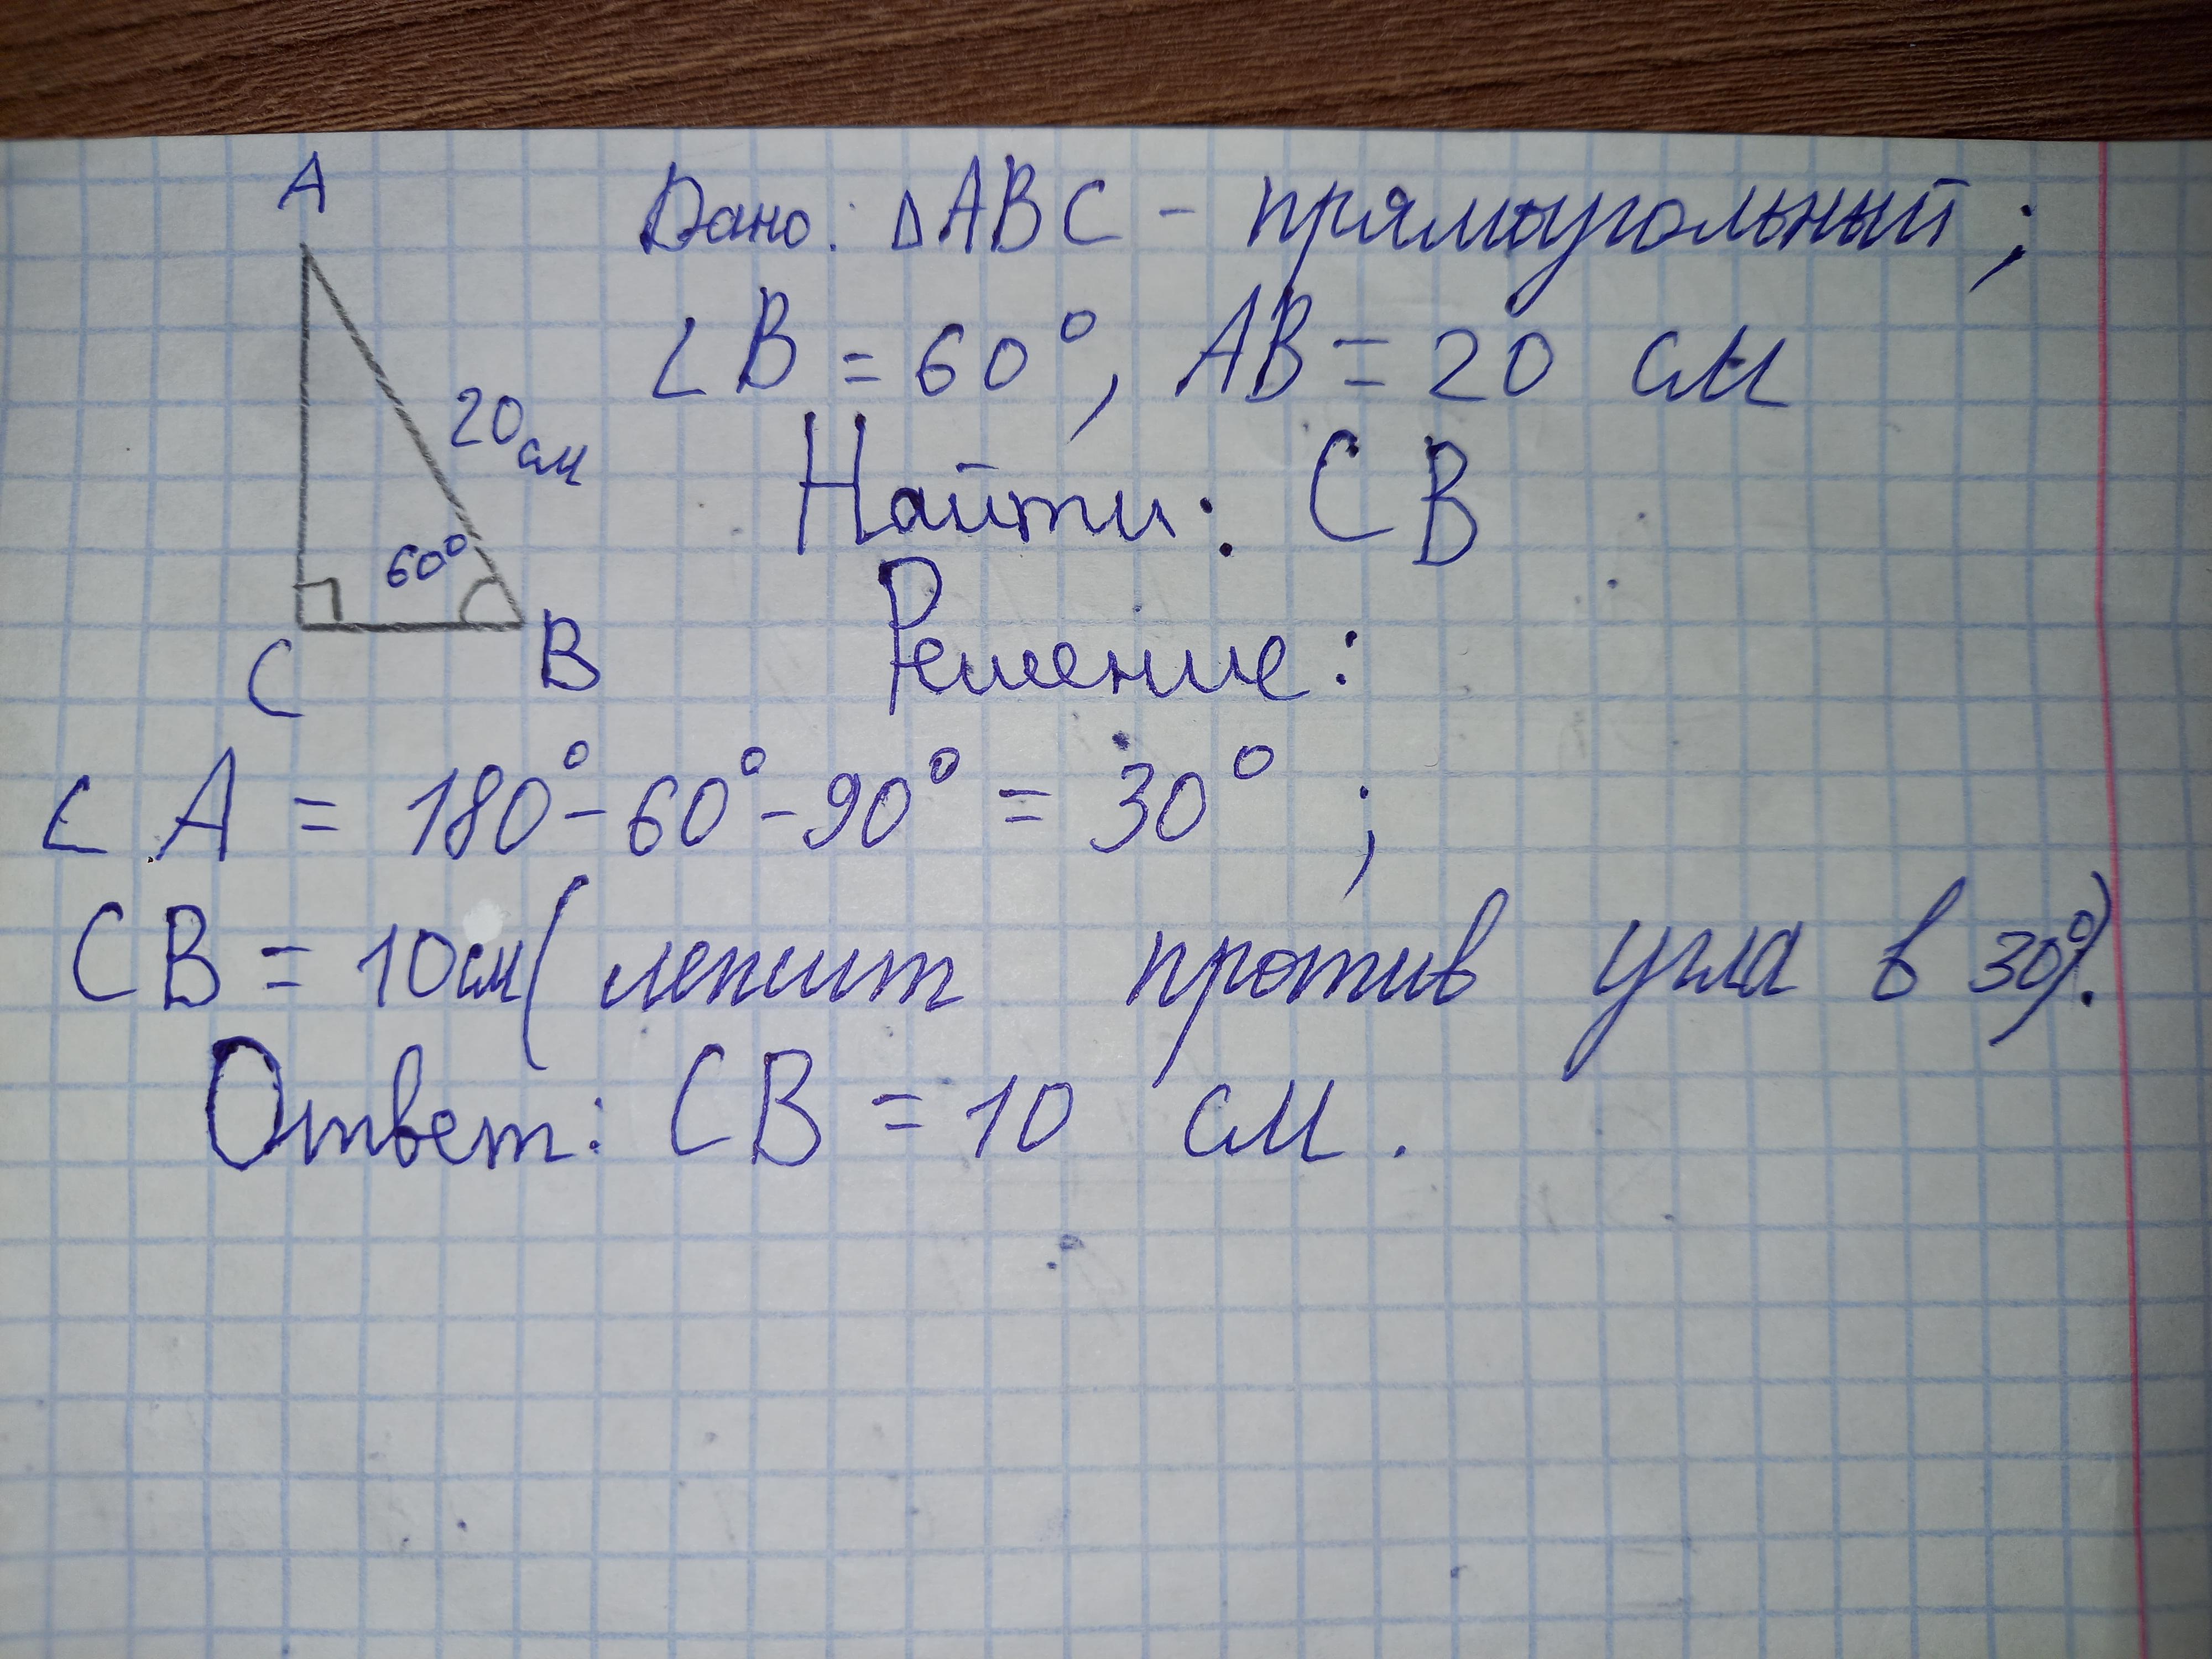 A
Дано: △ABC - прямоугольный;
∠B = 60°, AB = 20 см
20 см
Найти: CB
60°
C B
Решение:
∠A = 180° - 60° - 90° = 30° ;
CB = 10см (лежит против угла в 30°).
Ответ: CB = 10 см.